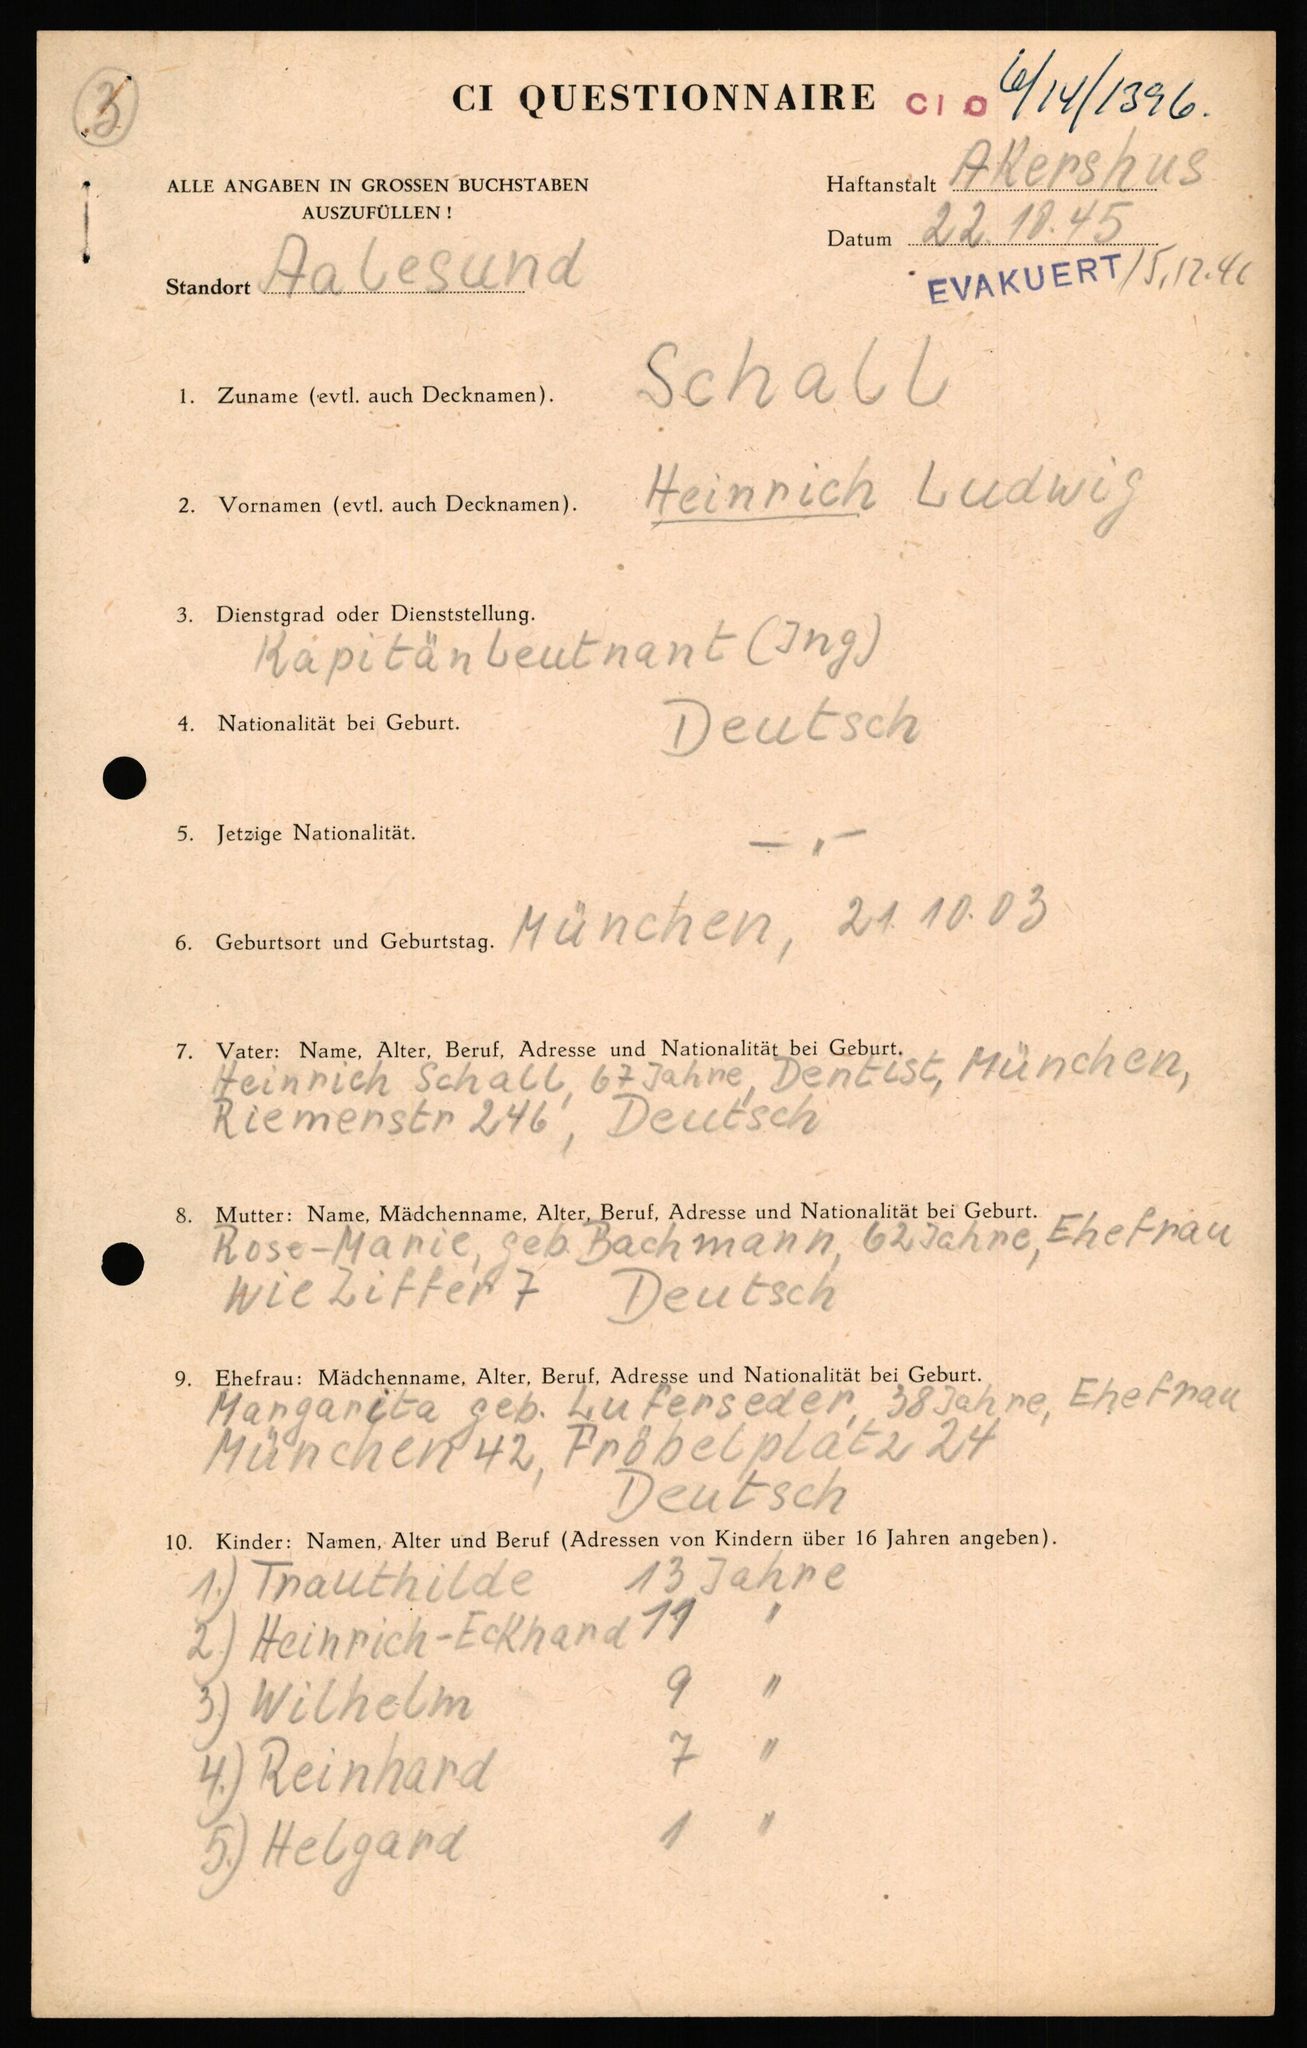 3
CI QUESTIONNAIRE CIO 6/14/1396.
ALLE ANGABEN IN GROSSEN BUCHSTABEN
AUSZUFÜLLEN!
Haftanstalt Akershus
Datum 22.10.45
EVAKUERT 15.12.46
Standort Aalesund
1. Zuname (evtl. auch Decknamen). Schall
2. Vornamen (evtl. auch Decknamen). Heinrich Ludwig
3. Dienstgrad oder Dienststellung.
Kapitänleutnant (Ing)
4. Nationalität bei Geburt. Deutsch
5. Jetzige Nationalität. — „ —
6. Geburtsort und Geburtstag. München, 21.10.03
7. Vater: Name, Alter, Beruf, Adresse und Nationalität bei Geburt.
Heinrich Schall, 67 Jahre, Dentist, München,
Riemenstr 246, Deutsch
8. Mutter: Name, Mädchenname, Alter, Beruf, Adresse und Nationalität bei Geburt.
Rose-Marie, geb. Bachmann, 62 Jahre, Ehefrau
wie Ziffer 7 Deutsch
9. Ehefrau: Mädchenname, Alter, Beruf, Adresse und Nationalität bei Geburt.
Margarita geb. Luferseder, 38 Jahre, Ehefrau
München 42, Fröbelplatz 24
Deutsch
10. Kinder: Namen, Alter und Beruf (Adressen von Kindern über 16 Jahren angeben).
1.) Trauthilde 13 Jahre
2.) Heinrich-Eckhard 11 "
3.) Wilhelm 9 "
4.) Reinhard 7 "
5.) Helgard 1 "